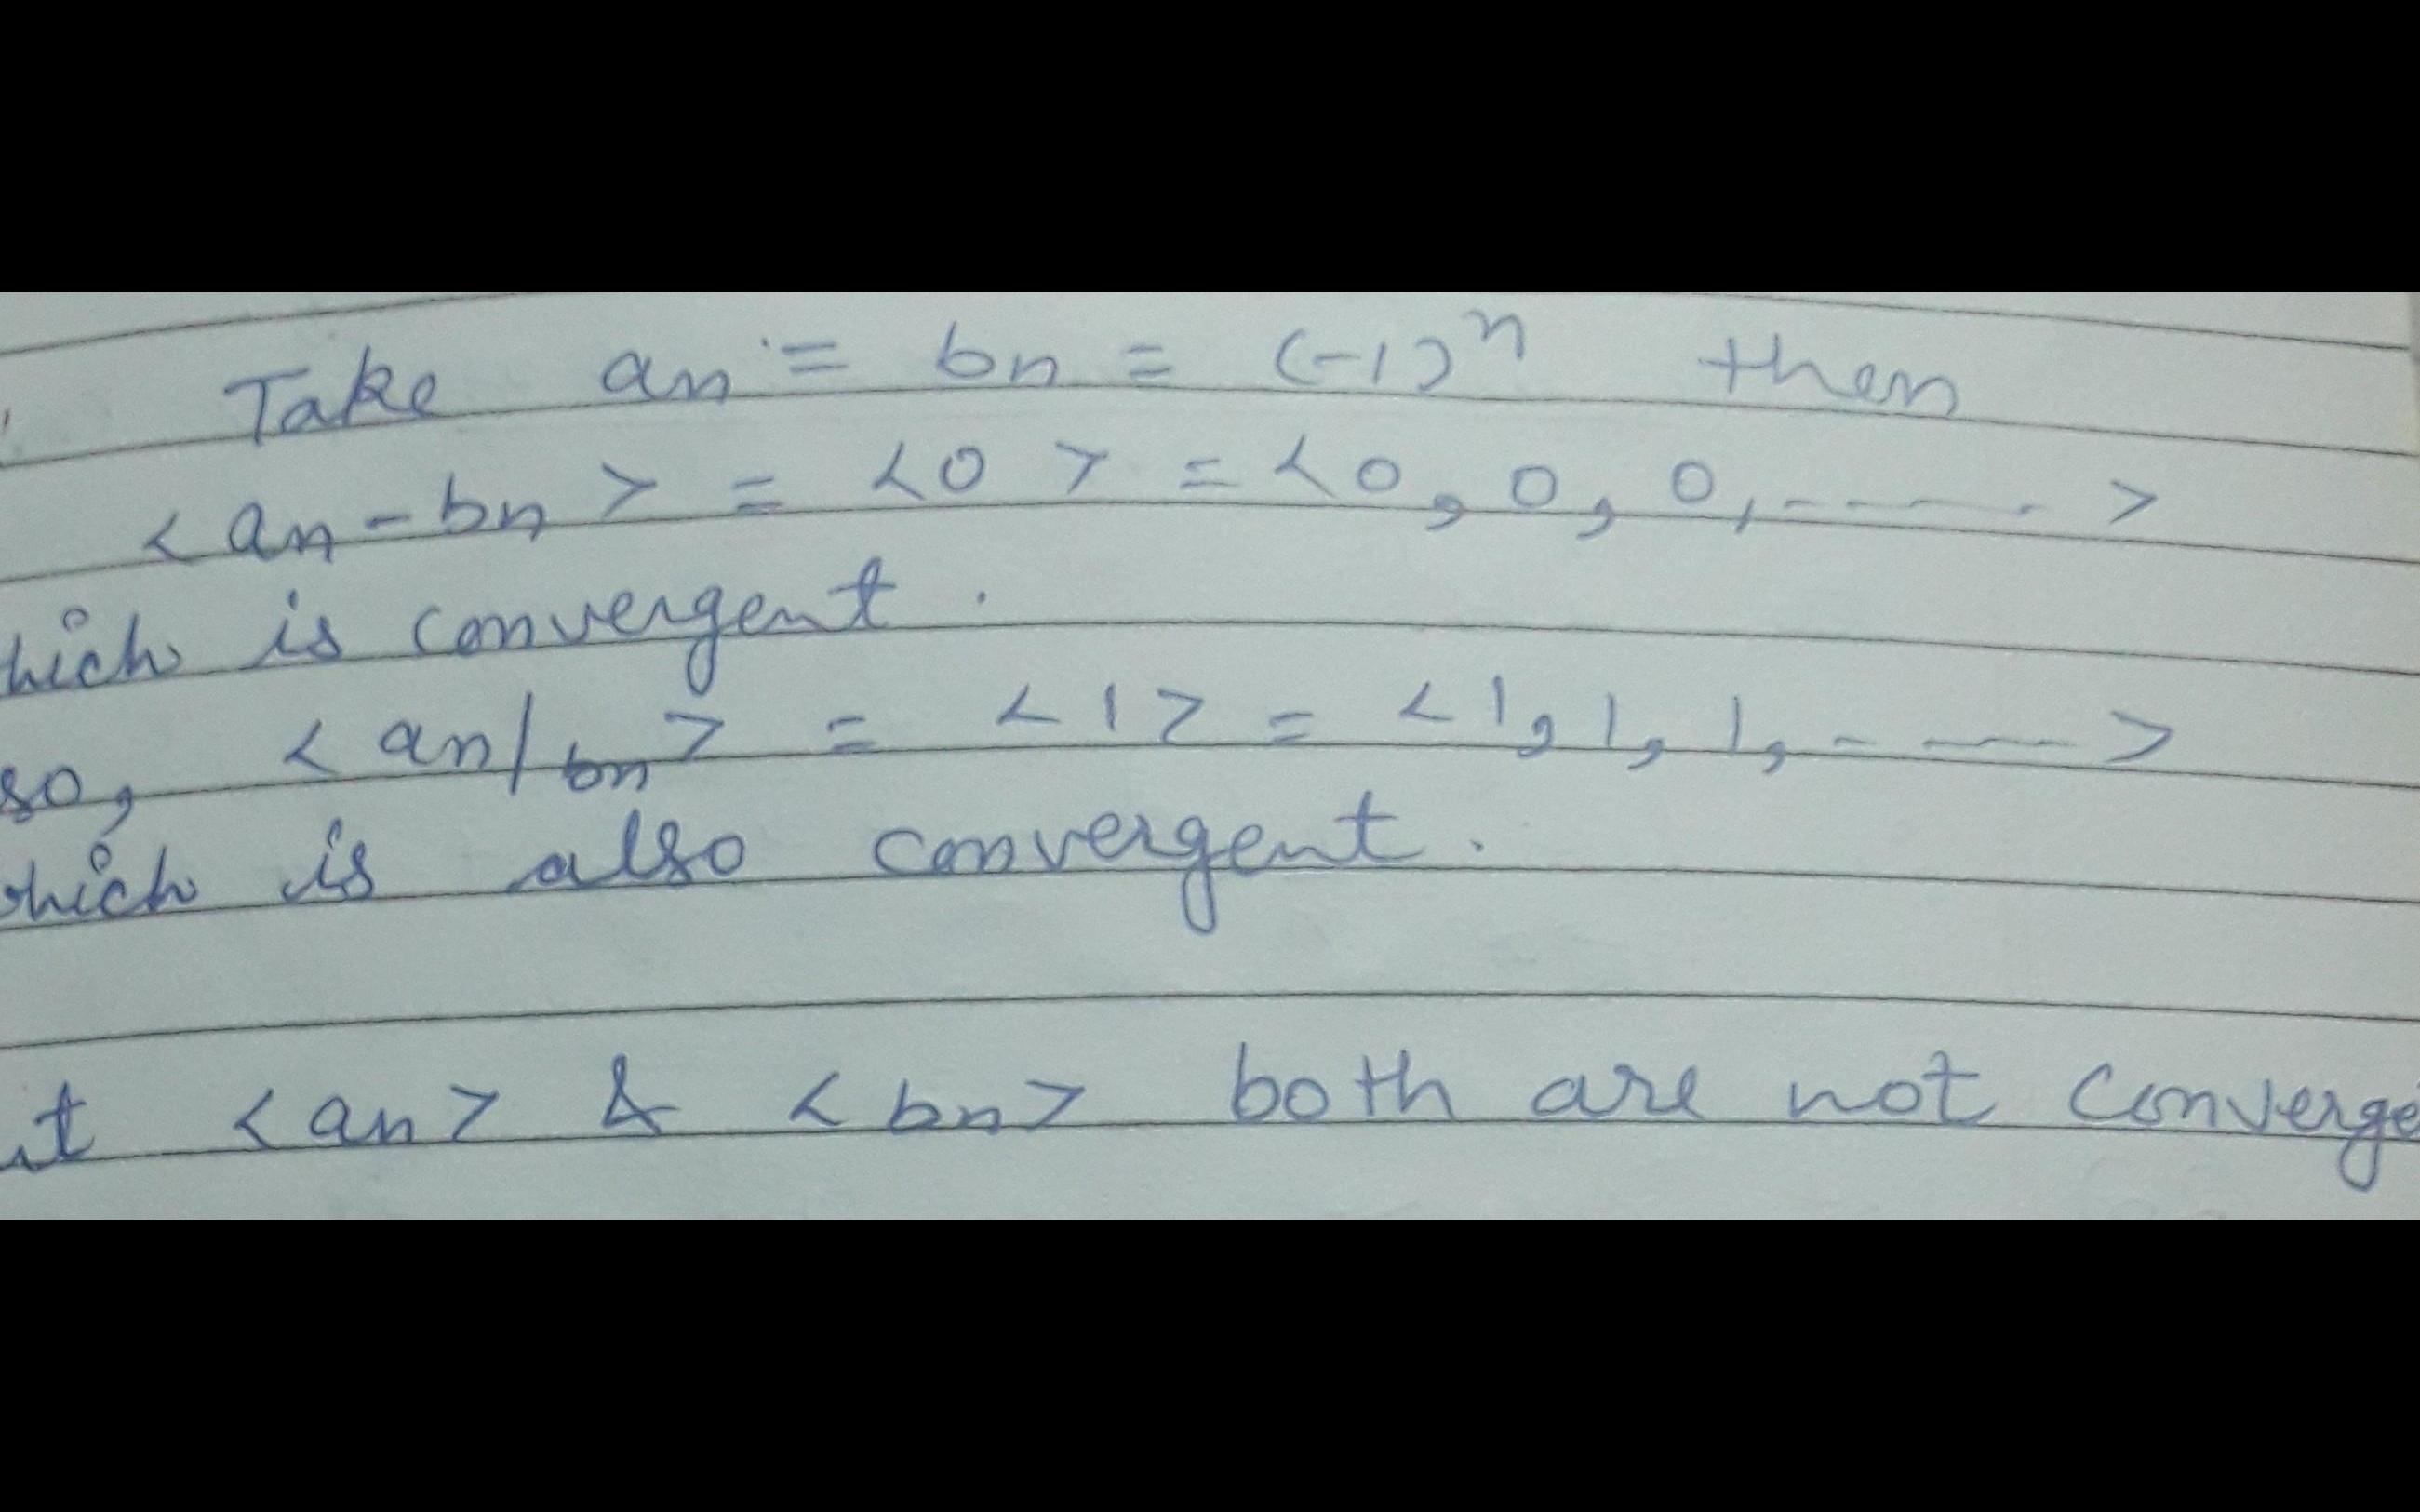 Take an = bn = (-1)ⁿ then
<an-bn> = <0> = <0, 0, 0, ------>
hich is convergent.
so, <an/bn> = <1> = <1, 1, 1, ----->
hich is also convergent.
t <an> & <bn> both are not converge